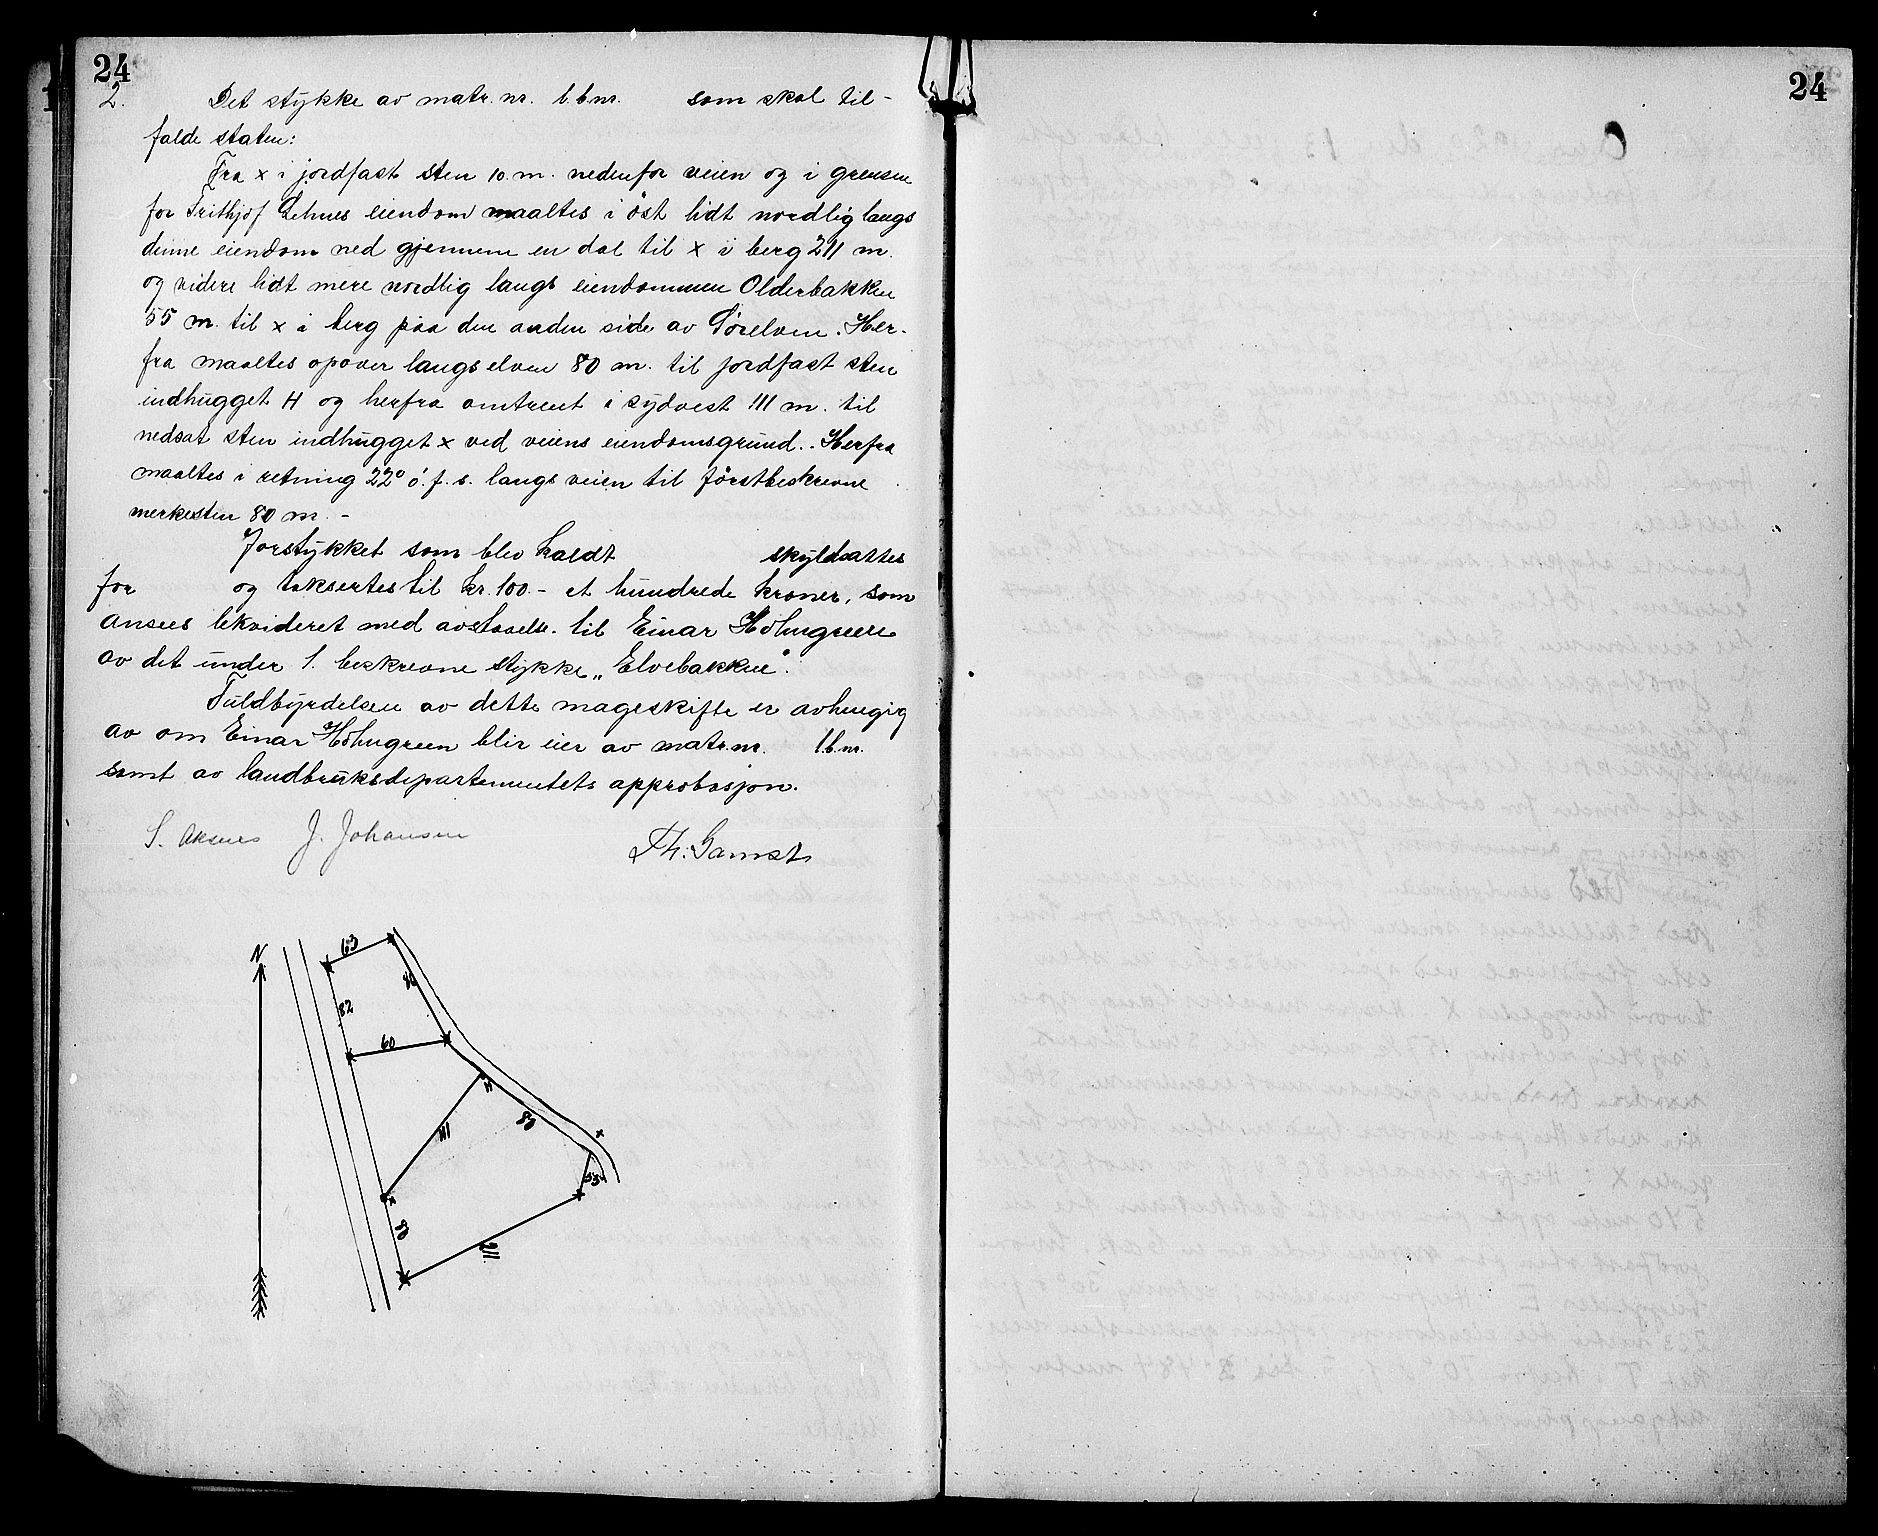 24
2. Det stykke av matr. nr. l.b nr. som skal til-
falde staten:
Fra x i jordfast sten 10. m. nedenfor veien og i grensen
for Frithjof Lehnes eiendom maaltes i öst lidt nordlig langs
denne eiendom ned gjennem en dal til x i berg 211 m.
og videre lidt mere nordlig langs eiendommen Olderbakken
55 m. til x i berg paa den anden side av Sörelven. Her-
fra maaltes opover langs elven 80 m. til jordfast sten
indhugget H og herfra omtrent i sydvest 111 m. til
nedsat sten indhugget x ved veiens eiendomsgrund. Herfra
maaltes i retning 22° ö. f. s. langs veien til förstbeskrevne
merkesten 80 m. -
Jorstykket som blev kaldt skyldsattes
for og taksertes til kr. 100.- et hundrede kroner, som
ansees likvideret med avstaaelse til Einar Holmgreen
av det under 1. beskrevne stykke „Elvebakken".
Fuldbyrdelsen av dette mageskifte er avhengig
av om Einar Holmgreen blir eier av matr. nr. l.b. nr.
samt av landbruksdepartementets approbasjon.
S. Aksnes J. Johansen
Th. Gamst
N
63
82
60
111
80
H
x
55
80
211
24